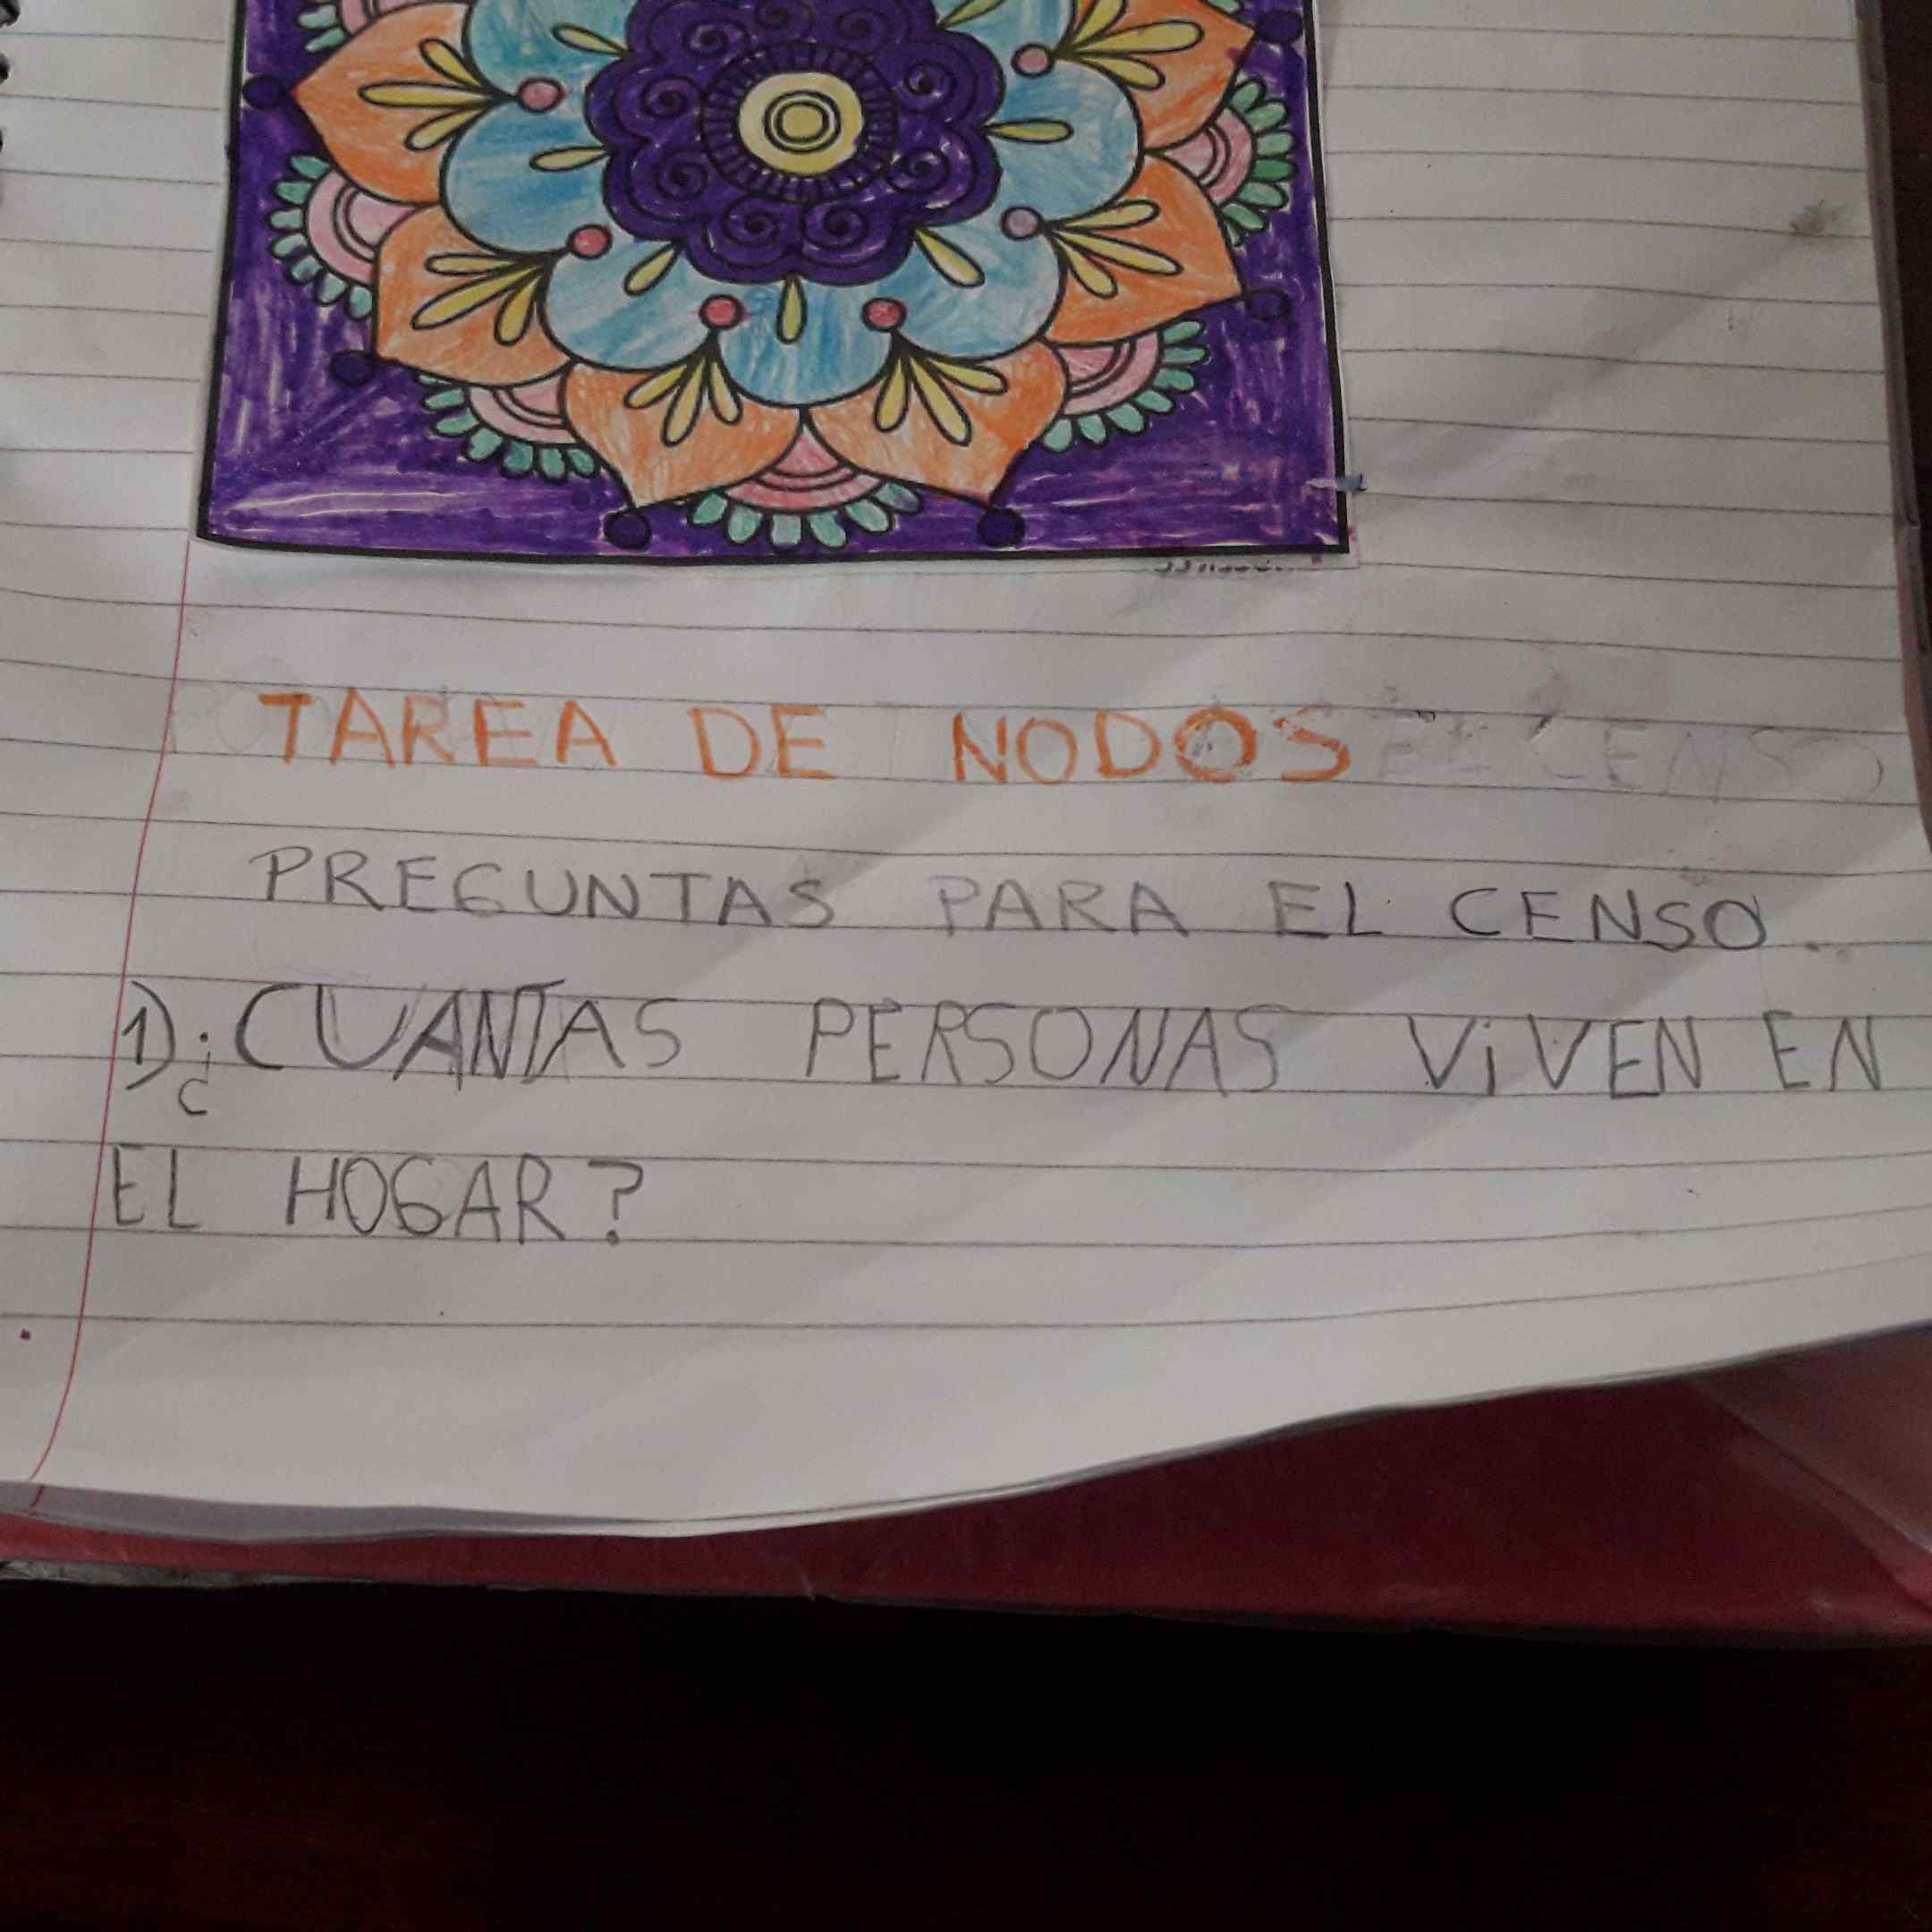 TAREA DE NODOS EL CENSO
PREGUNTAS PARA EL CENSO.
1) ¿CUANTAS PERSONAS VIVEN EN
EL HOGAR?